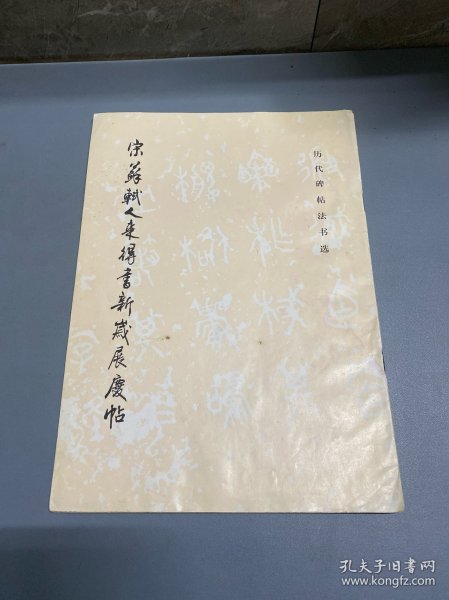 历代碑帖法书选
宋蘇軾人来得書新歲展慶帖
孔夫子旧书网
www.kongfz.com